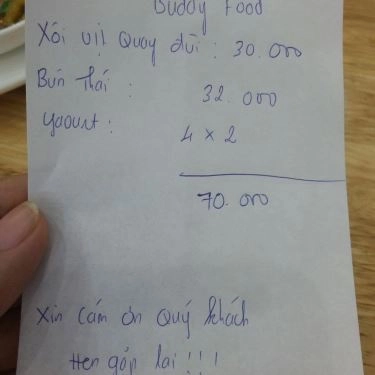 Buddy Food
Xói vịt Quay đùi : 30.000
Bún Thái : 32.000
Yaourt : 4 x 2
70.000
Xin cám ơn Quý khách
Hẹn gặp lại !!!